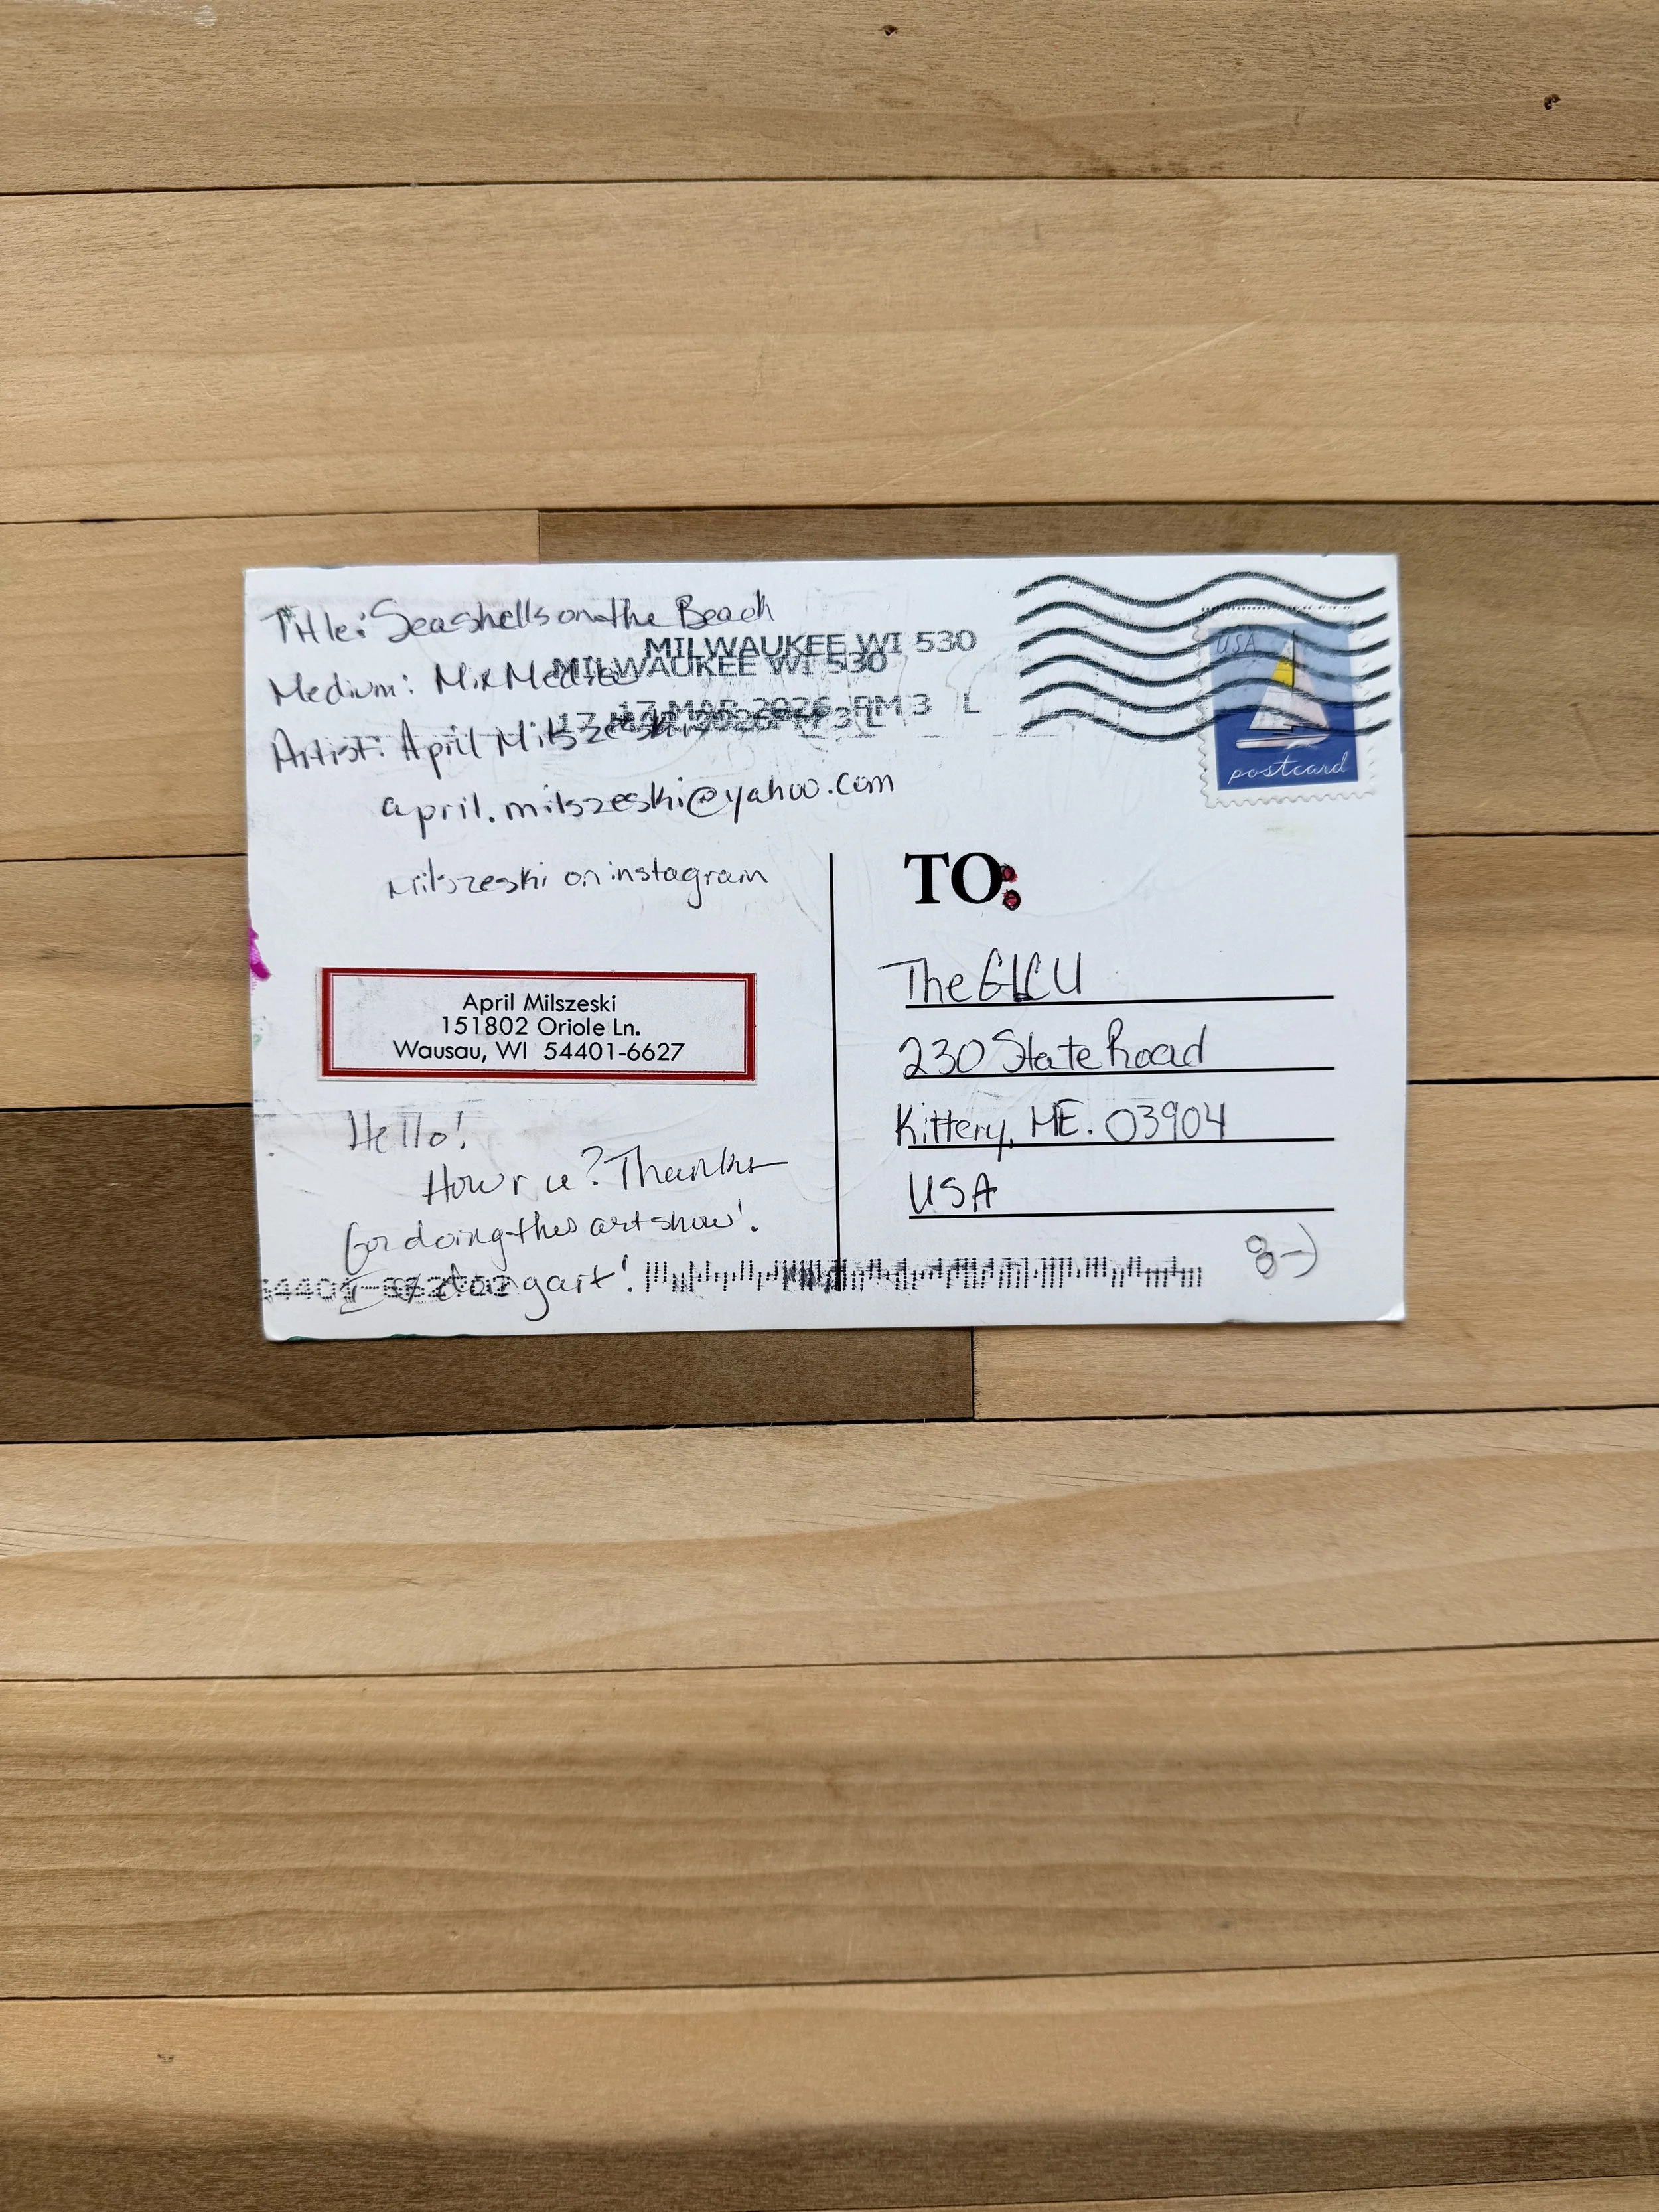 Title: Seashells on the Beach
MILWAUKEE WI 530
MILWAUKEE WI 530
Medium: Mix Media
17 MAR 2026 PM 3 L
17 MAR 2026 PM 3 L
Artist: April Milszeski
april.milszeski@yahoo.com
milszeski on instagram
USA
postcard
April Milszeski
151802 Oriole Ln.
Wausau, WI 54401-6627
Hello!
How r u? Thanks
for doing this art show!
art!
TO:
The GLCU
230 State Road
Kittery, ME. 03904
USA
8-)